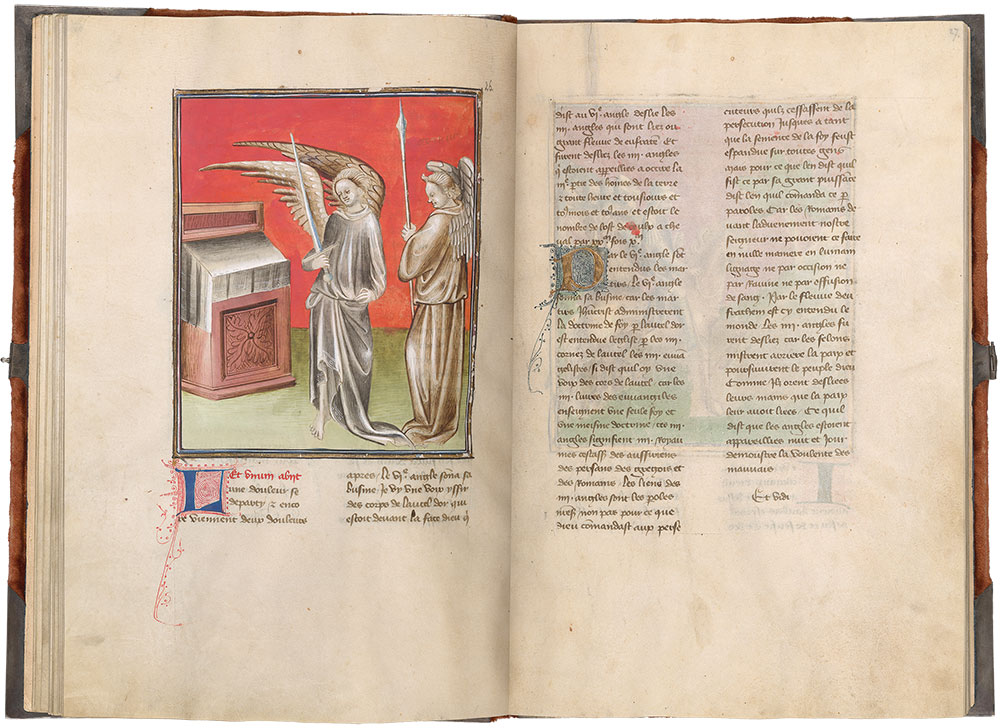 26
Et vnum abyt
une douleur se
departy & enco
re viennent deux douleurs
apres / Le vi.e angle sonna sa
busine Je oy vne voix yssir
des corps de lautel dor qui
estoit deuant la face dieu q̄
27
dist au vi.e angle deslie les
iiii. angles qui sont liez ou
grant fleuue de eufrate Et
furent desliez les iiii. angles
estoient appeilliez a occire la
iii.e ptie des hōmes de la terre
& toute heure et tousiours et
et estoit le
nombre de lost
ual par fois
Par le vi.e angle sōt
entendus les mar
tirs Le vi.e angle
sonna sa busine car les mar
tirs administrerent
la doctrine de foy p lautel dor
est entendue leglise p les iiii.
cornez de lautel les iiii euua
gelistes si dist quil oy Vne
voix des cors de lautel car les
iiii. liures des euuangilles
enseignent vne seule foy et
vne meisme doctrine
angles signifient iiii. Royau
mes cestass des assiriens
des persans des greciois et
des Romains Les liens des
iiii. angles sont les
non pas pour ce que
dieu comandast aux perse
cuteurs quilz cessassent de la
persecution Jusques a tant
que la semence de la foy feust
espandue sur toutes gens
Mais pour ce que len dist quil
fist ce par sa grant puissāce
dist len quil comanda ce p
paroles Car les Romains de
uant laduenement nostre
seigneur ne pouoient ce faire
en nulle maniere en lumain
lignage ne par occision ne
par Rauine ne par effusion
de sang. Par le fleuue deu
frathem est cy entendu le
monde Les iiii. angles fu
rent desliez car les felons
mistrent arriere la paix et
poursuiuirent le peuple dieu
Comme Ilz orent desliees
leurs mains que la paix
leur auoit liees / Ce quil
dist que les angles estoient
appareilliez nuit et Jour
demoustre la voulente des
mauuais
Et vidi